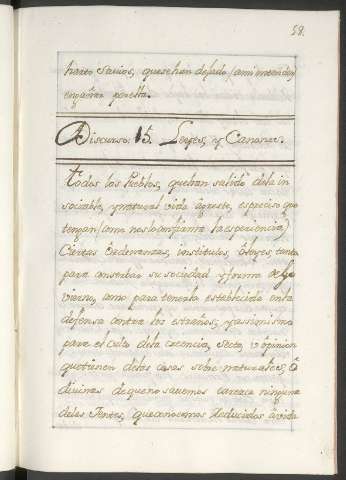 58.
harto savios, que se han dejado (a mi entender)
engañar por ella.
Discurso 15. Leyes, y Canones.
todos los Pueblos, que han salido dela in
sociable, y natural vida agreste, es preciso que
tengan (como nos lo confirma la esperiencia)
Ciertas Ordenanzas, institutos, ó leyes, tanto
para conservar su sociedad y forma de Go
vierno, como para tenerla establecido en la
defensa contra los estraños, y assimismo
para el Culto dela creencia, Secta, u opinion
que tienen delas cosas sobre naturales, ó
divinas de que no savemos carezca ninguna
delas Gentes, que conocemos reducidas á vida